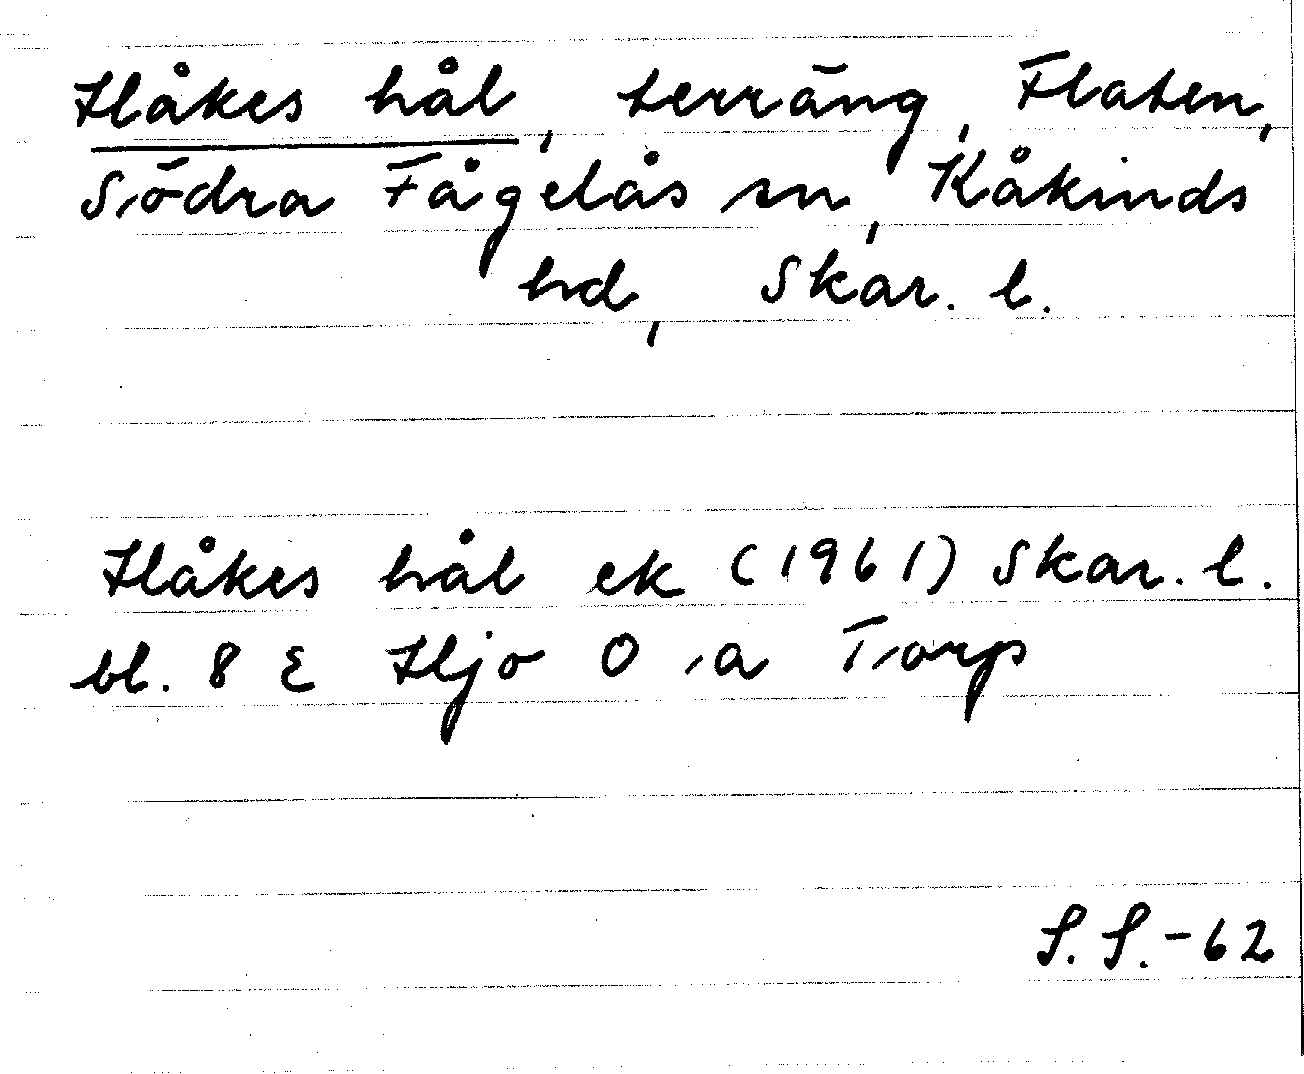 Håkes hål, terräng, Flaten,
Södra Fågelås sn, Kåkinds
hd, Skar. l.
Håkes hål ek (1961) Skar. l.
bl. 8 E Hjo O a Torp
S. S. -62